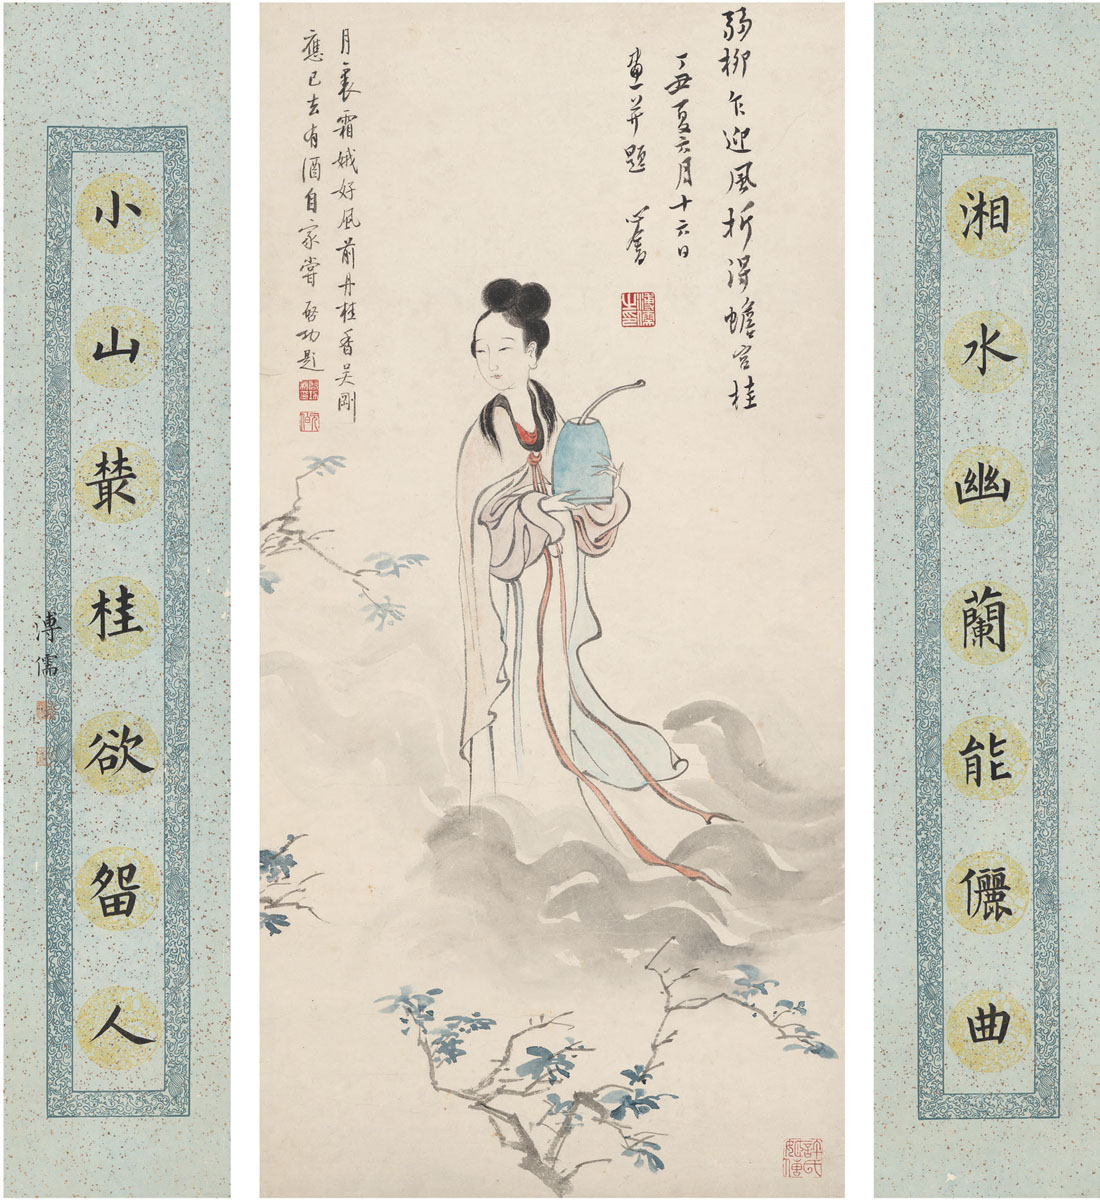 湘水幽蘭能儷曲
弱柳乍迎風折得蟾宮桂
丁丑夏六月十六日
畫并題 心畬
溥儒之印
月裏霜娥好風前丹桂香吴剛
應已去有酒自家嘗 啓功題
元白
許氏姬傳
小山叢桂欲留人
溥儒